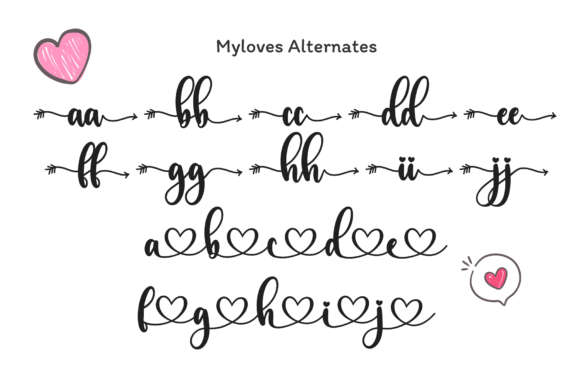 Myloves Alternates
aa bb cc dd ee
ff gg hh ii jj
a b c d e
f g h i j